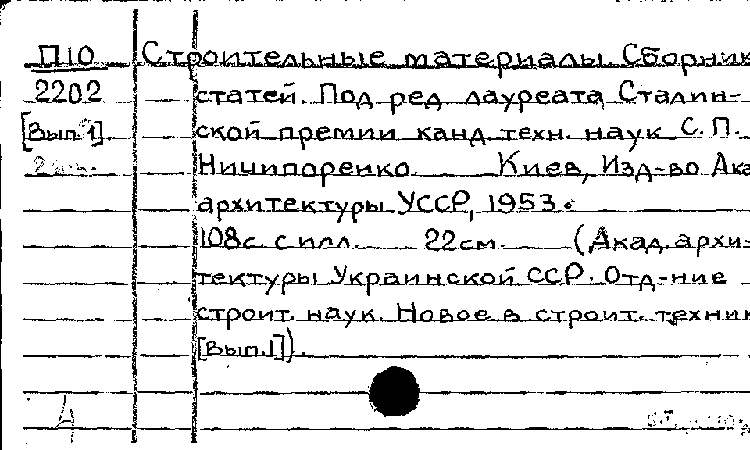 П10 Строительные материалы. Сборник
2202 статей. Под ред. лауреата Сталин-
[Вып. 1]. ской премии канд. техн. наук С. П.
Ничипоренко. Киев, Изд-во Ака
архитектуры УССР, 1953.
108с. с илл. 22см. (Акад. архи-
тектуры Украинской ССР. Отд-ние
строит. наук. Новое в строит. техник
[Вып. 1]).